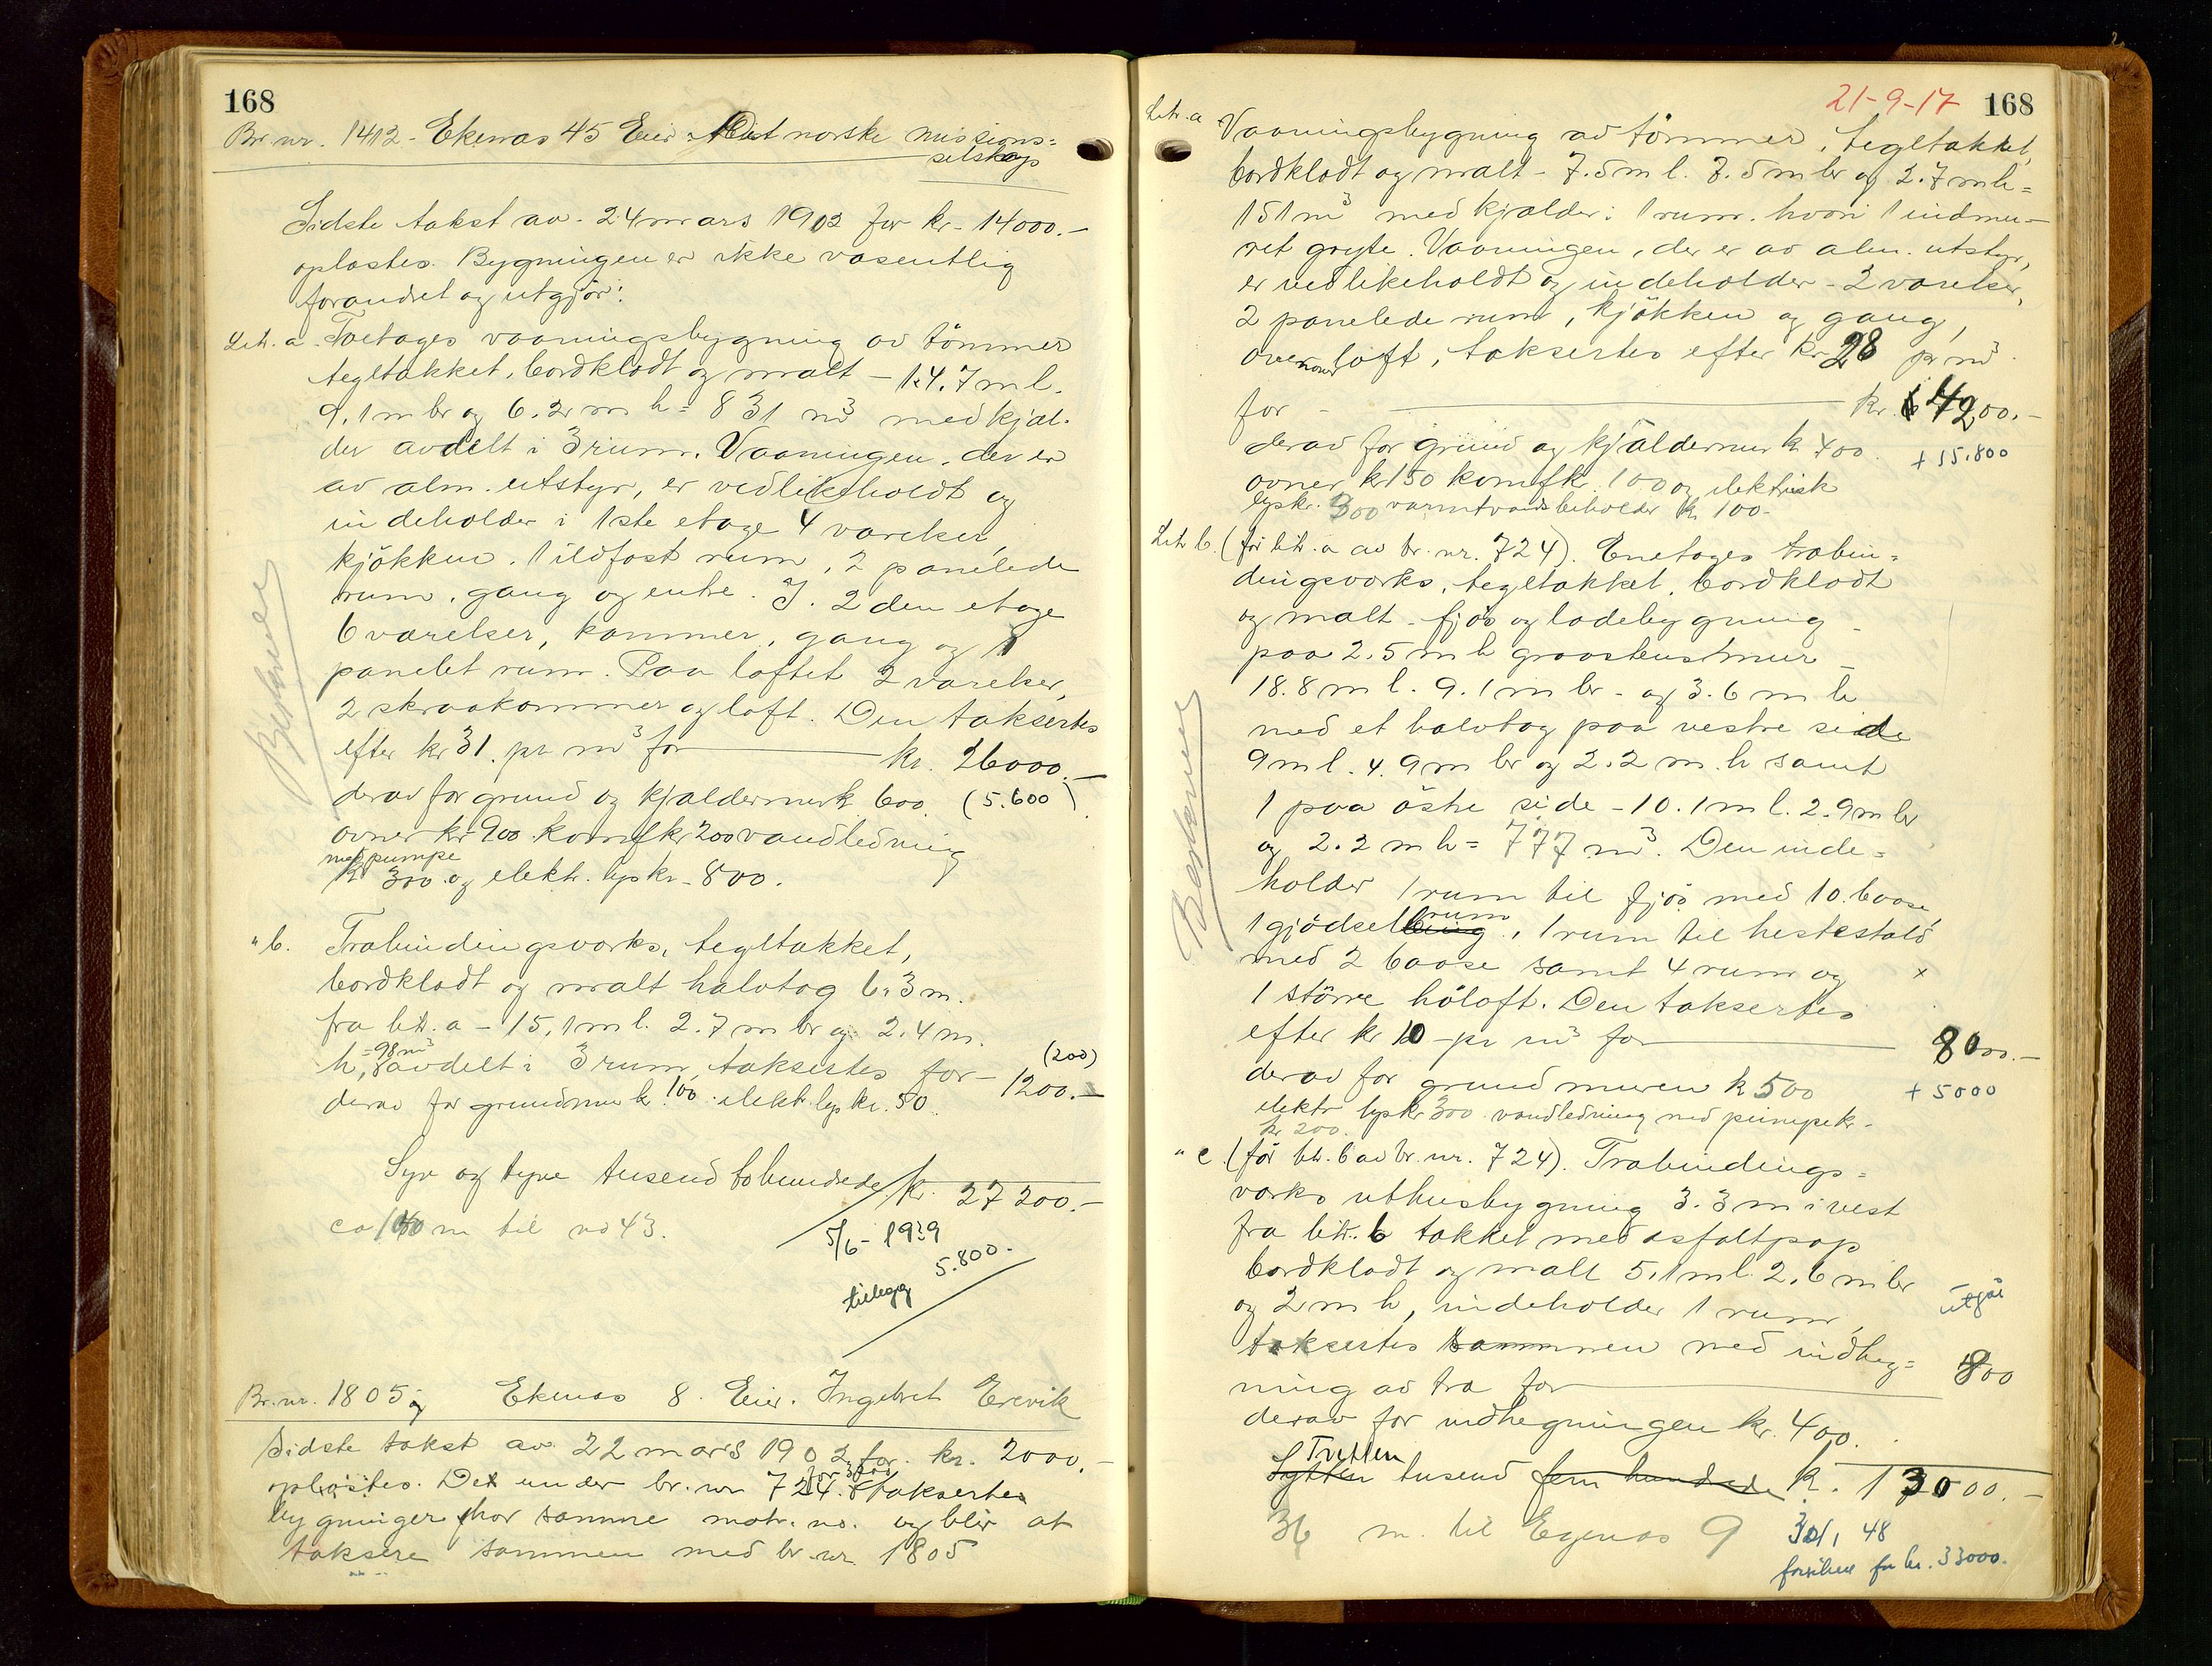 168
Br. nr. 1412 - Ekenæs 45 Eier: Det norske missions=
selskap
Sidste takst av 24 mars 1902 for kr. 14000.-
oplæstes. Bygningen er ikke væsentlig
forandret og utgjør:
Litr. a. Toetages vaaningsbygning av tømmer
tegltækket, bordklædt og malt - 14.7 m l.
9.1 m br og 6.2 m h = 831 m³ med kjæl-
der avdelt i 3 rum. Vaaningen, der er
av alm. utstyr, er vedlikeholdt og
indeholder i 1ste etage 4 værelser,
kjøkken, 1 ildfast rum, 2 panelede
rum, gang og entre. I. 2den etage
6 værelser, kammer, gang og 1
panelet rum. Paa loftet 2 værelser,
2 skraakammer og loft. Den taksertes
efter kr 31. pr m³ for kr. 26000.-
derav for grund og kjældermur k 600. (5.600)
ovner kr 900 komf kr 200 vandledning
med pumpe
kr 300 og elektr. lys kr. 800.
Bestemmer
" b. Træbindingsverks, tegltækket,
bordklædt og malt halvtag 6.3 m.
fra litr. a - 15.1 m l. 2.7 m br og 2.4 m.
= 98 m³
h, avdelt i 3 rum, taksertes for - 1200.-
(200)
derav for grundmur kr. 100 elekt lys kr. 50.
Syv og tyve tusend tohundrede kr. 27200.-
ca 140 m til no 43.
5/6 - 1939
tillegg 5.800.-
Br. nr. 1805 og Ekenæs 8. Eier. Ingebret Erevik
Sidste takst av 22 mars 1902 for kr. 2000.-
oplæstes. Det under br. nr 724 taksertes
bygninger har samme matr. no. og blir at
taksere sammen med br. nr 1805
21-9-17 168
Litr. a Vaaningsbygning av tømmer, tegltækket,
bordklædt og malt - 7.5 m l. 7.5 m br og 2.7 m h =
151 m³ med kjælder: 1 rum. hvori 1 indmu-
ret gryte. Vaaningen, der er av alm. utstyr,
er vedlikeholdt og indeholder - 2 værelser,
2 panelede rum, kjøkken og gang,
ovenover loft, taksertes efter kr 28 pr m³
for - kr. 4200.-
derav for grund og kjældermur k 400. + 15.800
ovner kr 150 komf k. 100 og elektrisk
lys kr. 300 varmtvandsbeholder kr 100.-
Litr b. (før litr. a av br. nr. 724). Enetages træbin=
dingsverks, tegltækket, bordklædt
og malt - fjøs og ladebygning -
paa 2.5 m h graastensmur -
18.8 m l. 9.1 m br - og 3.6 m h
med et halvtag paa vestre side
9 m l. 4.9 m br og 2.2 m. h samt
1 paa østre side - 10.1 m l. 2.9 m br
og 2.2 m h = 777 m³. Den inde=
holder 1 rum til fjøs med 10 baase
rum
1 gjødsel , 1 rum til hestestald
med 2 baase samt 4 rum og x
1 større høloft. Den taksertes
efter kr 10 - pr m³ for 8000.-
derav for grundmuren k 500 + 5000
elektr lys kr 300 vandledning med pumpe kr.
kr 200.
Bestemmer
" c (før litr. b av br. nr. 724). Træbindings=
verks uthusbygning 3.3 m i vest
fra litr. b tækket med asfaltpap
bordklædt og malt 5.1 m l 2.6 m br
og 2 m h, indeholder 1 rum, utgår
taksertes sammen med indheg=
ning av træ for 800
derav for indhegningen kr. 400.
Tretten
Sytten tusend fem hundrede k. 13000.-
36 m. til Egenæs 9
30/1 48
forsikres for kr. 33000.